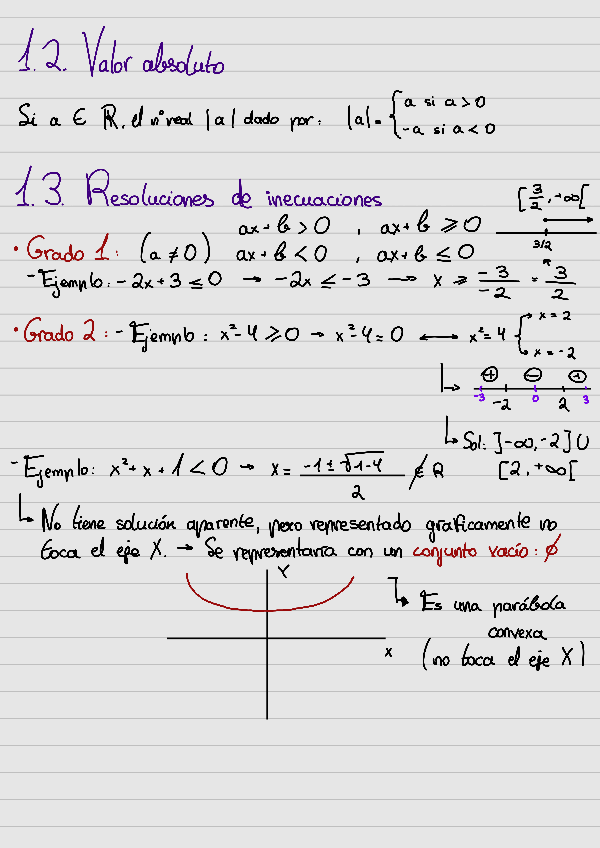 1.2. Valor absoluto
Si a ∈ ℝ, el nº real |a| dado por: |a| = { a si a > 0
-a si a < 0
1.3. Resoluciones de inecuaciones
[3/2, +∞[
ax + b > 0 , ax + b ⩾ 0
3/2
• Grado 1: (a ≠ 0) ax + b < 0 , ax + b ≤ 0
- Ejemplo: -2x + 3 ≤ 0 → -2x ≤ -3 → x ⩾ -3/-2 = 3/2
• Grado 2: - Ejemplo: x² - 4 ⩾ 0 → x² - 4 = 0 ↔ x² = 4 { x = 2
x = -2
↳ ⊕ ⊖ ⊕
-3 -2 0 2 3
↳ Sol: ]-∞, -2] U
[2, +∞[
- Ejemplo: x² + x + 1 < 0 → x = (-1 ± √1-4)/2 ∉ ℝ
↳ No tiene solución aparente, pero representado graficamente no
toca el eje X. → Se representaría con un conjunto vacío: ∅
Y
↳ Es una parábola
convexa
X
(no toca el eje X)